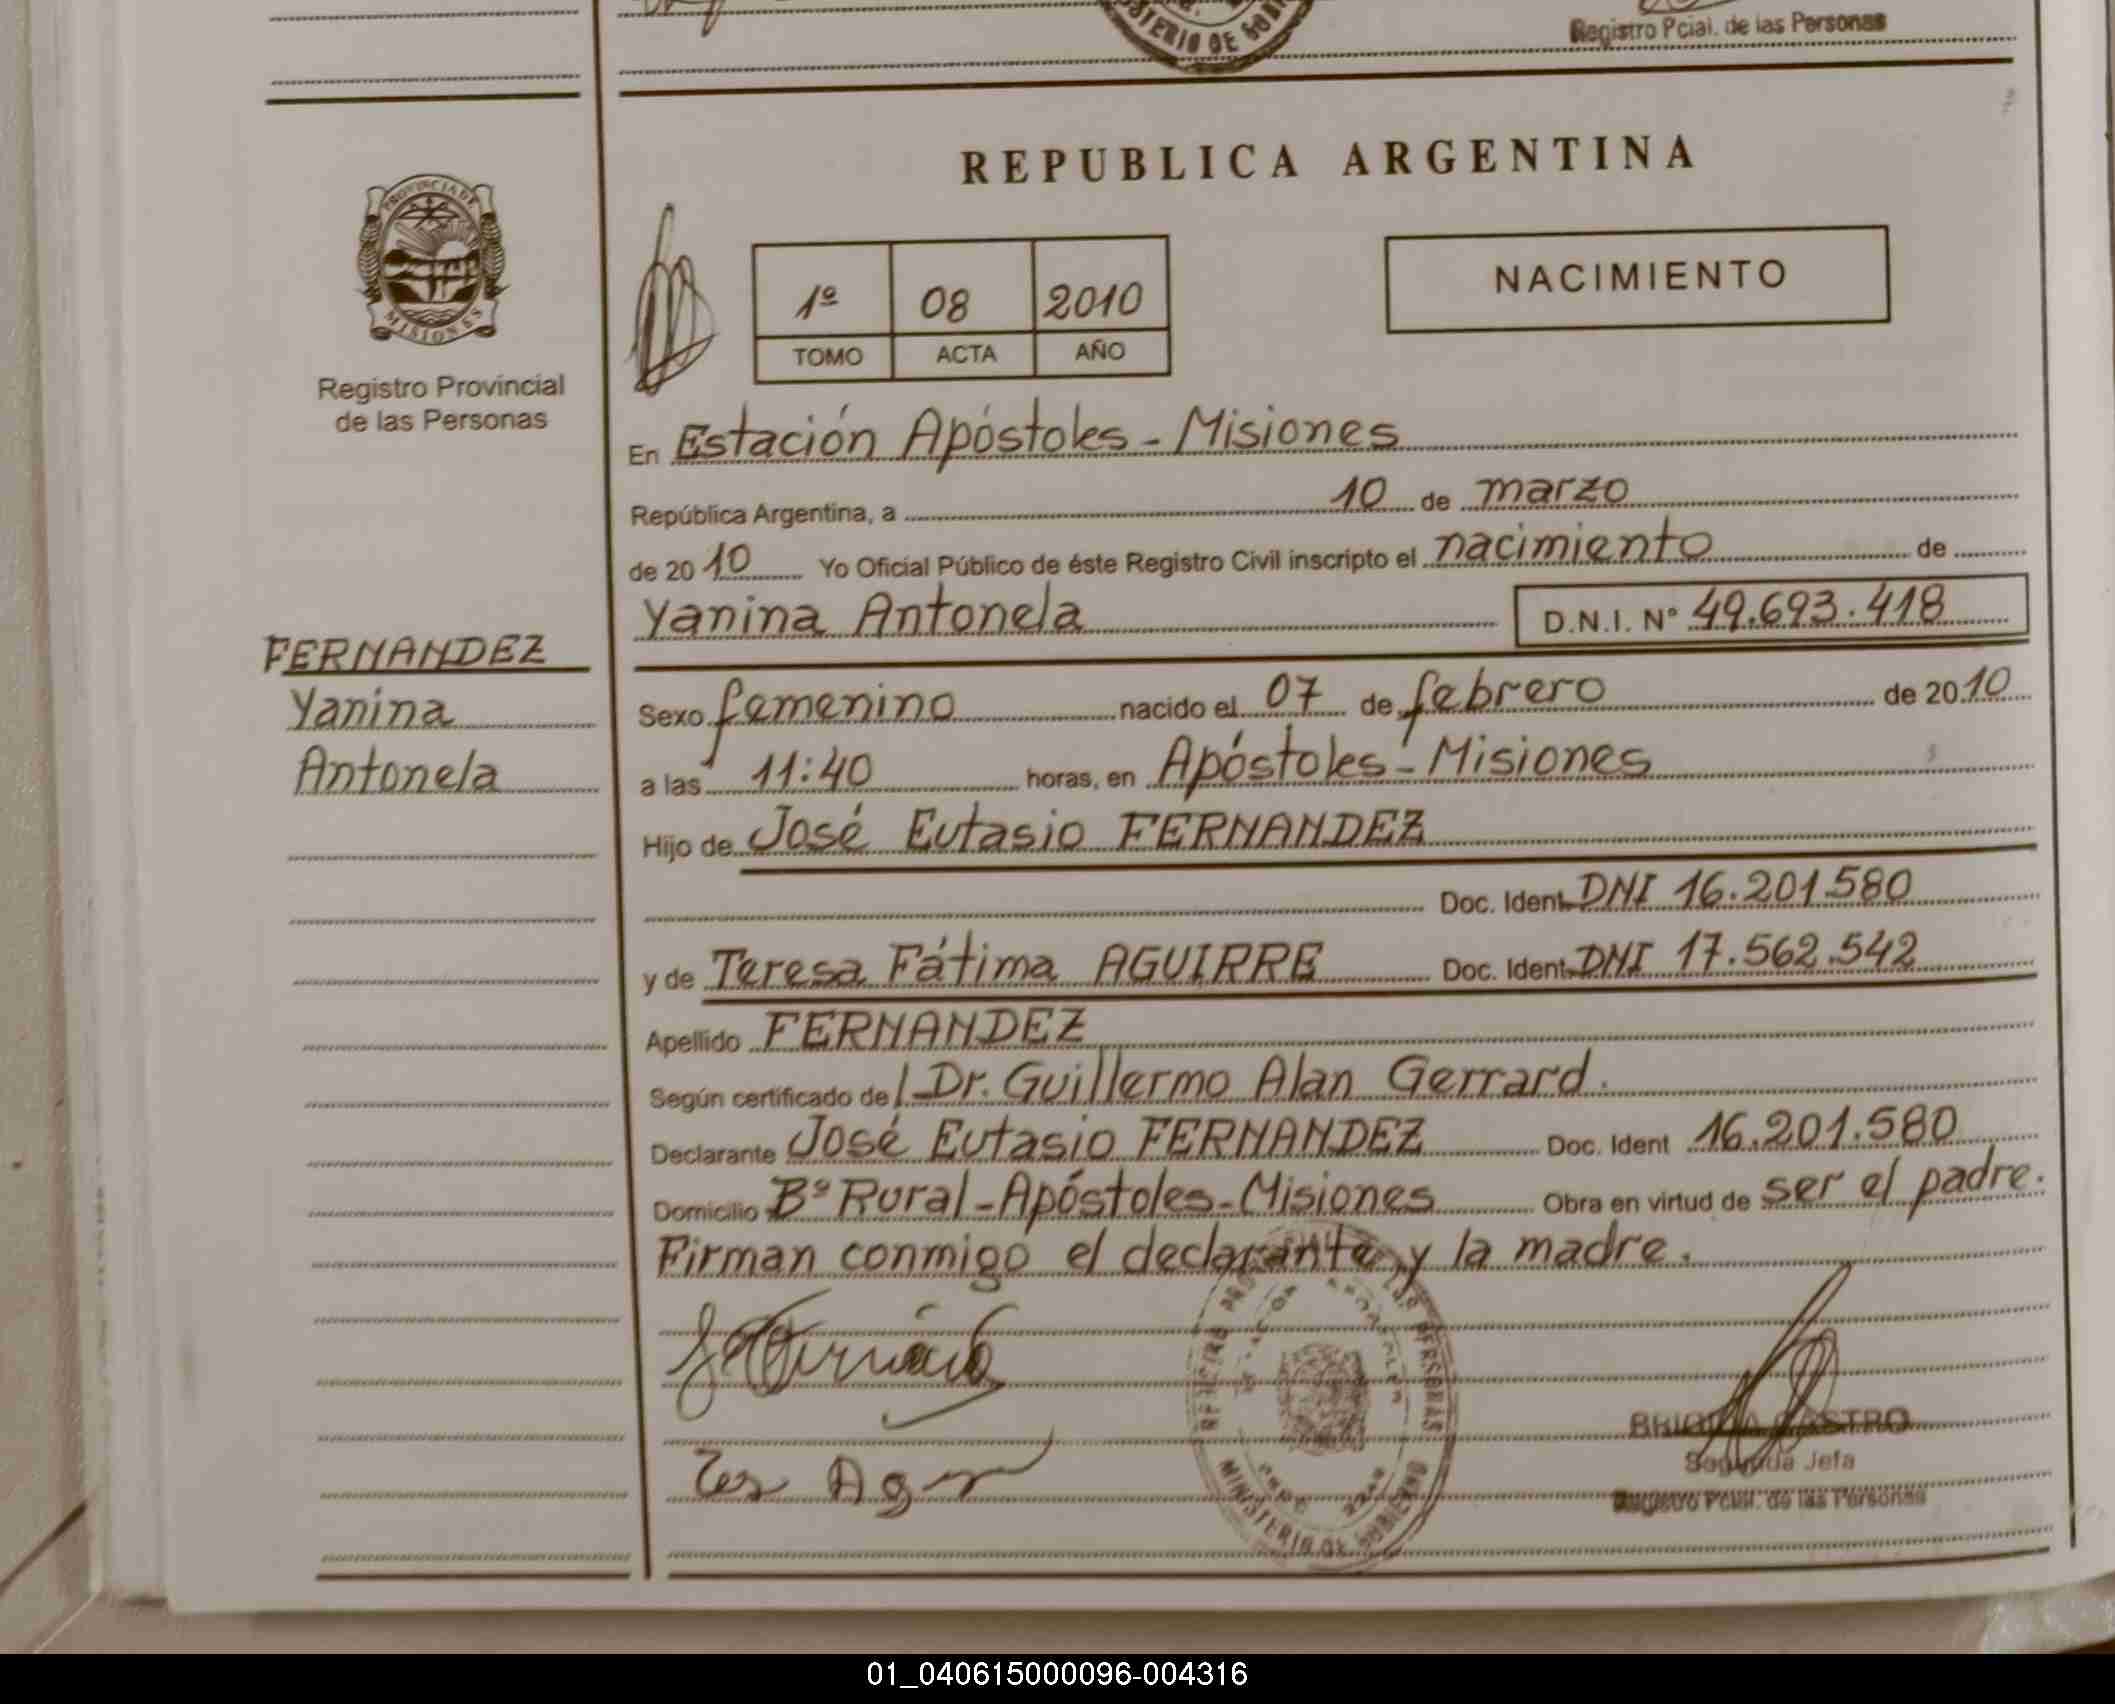 MINISTERIO DE GOBIERNO
Registro Pcial. de las Personas
REPUBLICA ARGENTINA
PROVINCIA DE
MISIONES
Registro Provincial
de las Personas
1º 08 2010
TOMO ACTA AÑO
NACIMIENTO
En Estación Apóstoles - Misiones
República Argentina, a 10 de marzo
de 2010 Yo Oficial Público de éste Registro Civil inscripto el nacimiento de
Yanina Antonela D.N.I. Nº 49.693.418
FERNANDEZ
Yanina
Antonela
Sexo femenino nacido el 07 de febrero de 2010
a las 11:40 horas, en Apóstoles - Misiones
Hijo de José Eutasio FERNANDEZ
Doc. Ident. DNI 16.201.580
y de Teresa Fátima AGUIRRE Doc. Ident. DNI 17.562.542
Apellido FERNANDEZ
Según certificado de Dr. Guillermo Alan Gerrard.
Declarante José Eutasio FERNANDEZ Doc. Ident 16.201.580
Domicilio Bº Rural - Apóstoles - Misiones Obra en virtud de ser el padre.
Firman conmigo el declarante, y la madre.
MINISTERIO DE GOBIERNO
CASTRO
Segunda Jefa
Registro Pcial. de las Personas
01_040615000096-004316